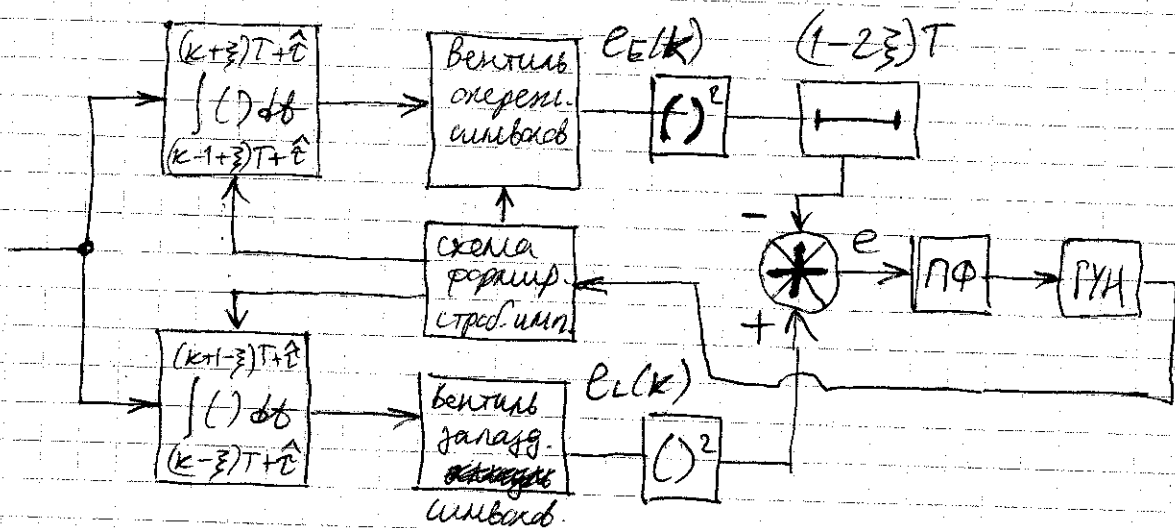 (к+ξ)T+τ̂
∫( ) dt
(к-1+ξ)T+τ̂
Вентиль
опереж.
символов
e_E(k)
( )²
(1-2ξ)T
схема
формир.
строб.имп.
-
+
e
ПФ
ГУН
(к+1-ξ)T+τ̂
∫( ) dt
(к-ξ)T+τ̂
Вентиль
запазд.
символов.
e_L(к)
( )²